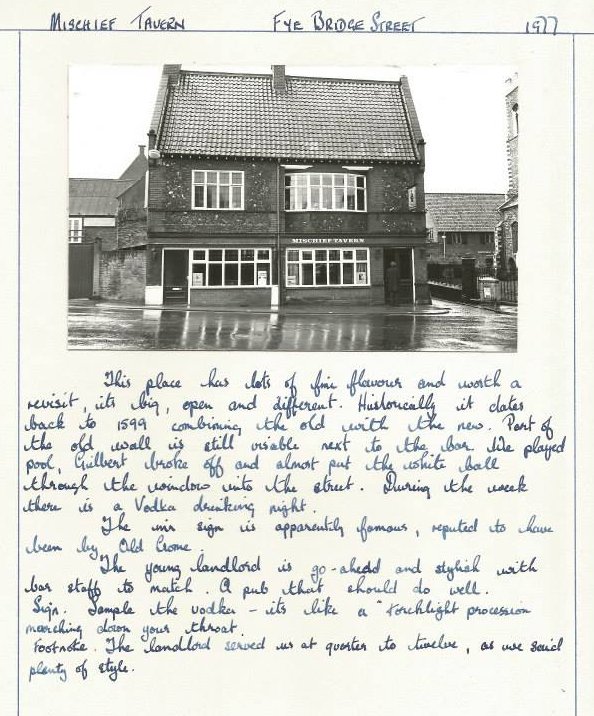 MISCHIEF TAVERN FYE BRIDGE STREET 1977
MISCHIEF TAVERN
This place has lots of fine flavour and worth a
revisit, its big, open and different. Historically it dates
back to 1599 combining the old with the new. Part of
the old wall is still visable next to the bar. We played
pool, Guilbert broke off and almost put the white ball
through the window into the street. During the week
there is a Vodka drinking night.
The inn sign is apparently famous, reputed to have
been by Old Crome.
The young landlord is go-ahead and stylish with
bar staff to match. A pub that should do well.
Sign. Sample the vodka - its like a "torchlight procession
marching down your throat.
Footnote. The landlord served us at quarter to twelve, as we said
plenty of style.